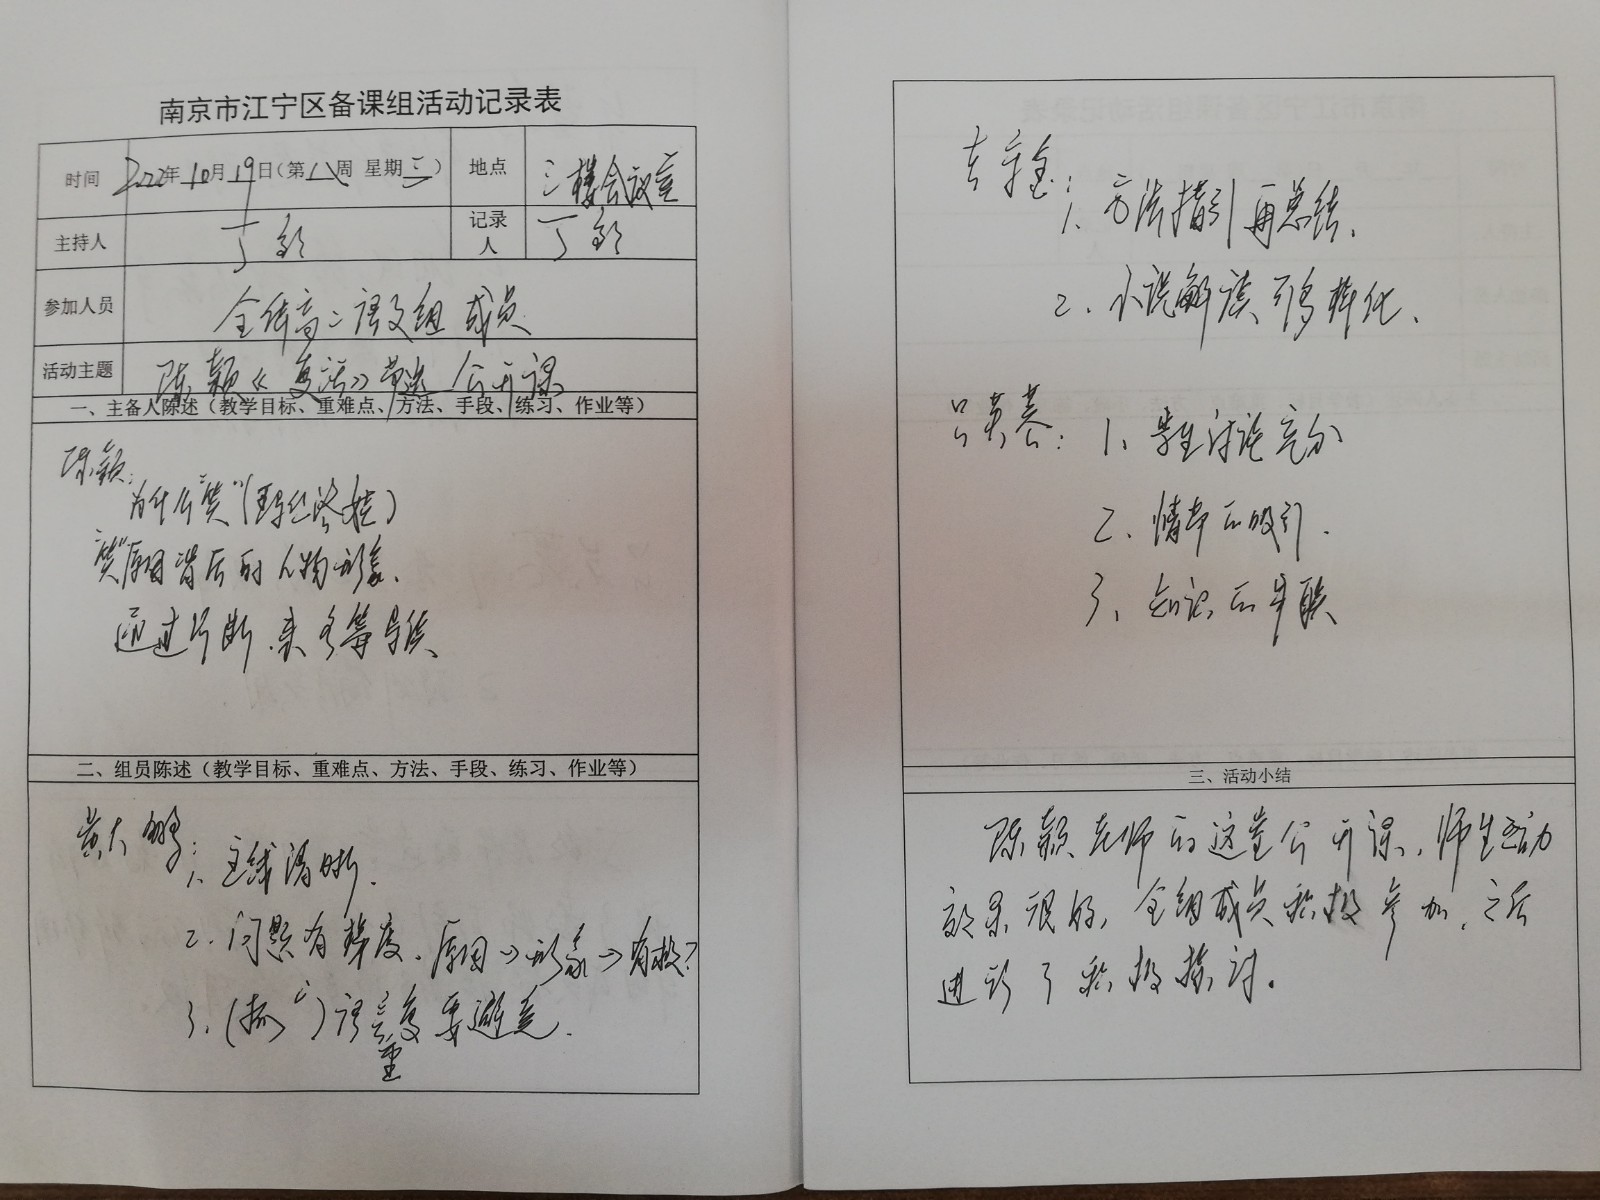 南京市江宁区备课组活动记录表
时间 2022年10月19日(第八周 星期三) 地点 三楼会议室
主持人 丁 记录人 丁
参加人员 全体高二语文组成员
活动主题 陈颖《复活》节选 公开课
一、主备人陈述（教学目标、重难点、方法、手段、练习、作业等）
陈颖：
为什么"笑"(
"笑"原因背后的人物形象.
通过
二、组员陈述（教学目标、重难点、方法、手段、练习、作业等）
黄大
1. 主线清晰.
2. 问题有梯度. 原因→形象→有
3. ( )语言重复要避免.
1. 方法指引再总结.
2. 小说解读可多样化.
吕英慕： 1. 学生讨论充分
2. 情节的吸引.
3. 知识的串联
三、活动小结
陈颖老师的这堂公开课，师生互动
效果很好，全组成员积极参加，之后
进行了积极探讨。